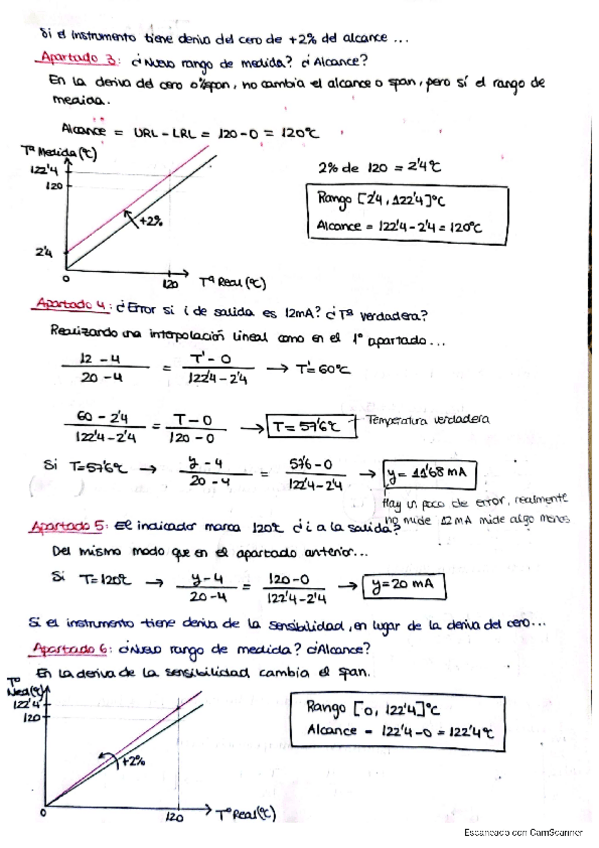 Si el instrumento tiene deriva del cero de +2% del alcance ...
Apartado 3: ¿Nuevo rango de medida? ¿Alcance?
En la deriva del cero o%span, no cambia el alcance o span, pero sí el rango de
medida.
Alcance = URL - LRL = 120-0 = 120℃
Tª Medida (℃)
122'4
120
2'4
0
+2%
120
Tª Real (℃)
2% de 120 = 2'4℃
Rango [2'4, 122'4]℃
Alcance = 122'4-2'4 = 120℃
Apartado 4: ¿Error si i de salida es 12mA? ¿Tª verdadera?
Realizando una interpolación lineal como en el 1º apartado...
12 - 4 / 20 - 4 = T' - 0 / 122'4 - 2'4 → T'= 60℃
60 - 2'4 / 122'4 - 2'4 = T - 0 / 120 - 0 → T = 57'6℃ → Temperatura verdadera
Si T=57'6℃ → y - 4 / 20 - 4 = 57'6 - 0 / 122'4 - 2'4 → y = 11'68 mA
Hay un poco de error, realmente
no mide 12mA mide algo menos
Apartado 5: El indicador marca 120℃ ¿i a la salida?
Del mismo modo que en el apartado anterior...
Si T=120℃ → y-4 / 20-4 = 120-0 / 122'4-2'4 → y=20 mA
Si el instrumento tiene deriva de la sensibilidad, en lugar de la deriva del cero...
Apartado 6: ¿Nuevo rango de medida? ¿Alcance?
En la deriva de la sensibilidad cambia el span.
Tº
Med(℃)
122'4
120
0
+2%
120
Tº Real (℃)
Rango [0, 122'4]℃
Alcance = 122'4-0 = 122'4℃
Escaneado con CamScanner